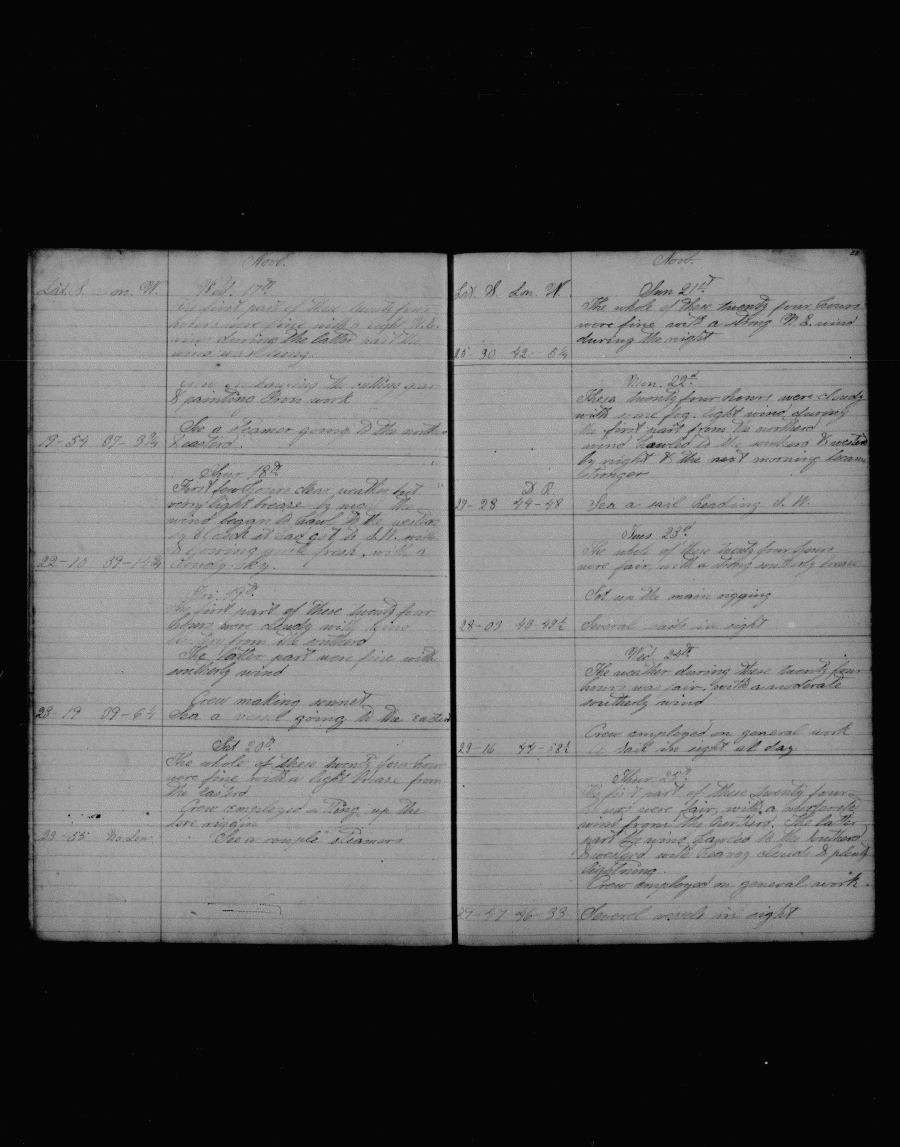 Nov.
Lat. S. Lon. W. Wed. 17th
The first part of these twenty four
hours were fine with a light N.E.
wind during the latter part the
wind was
the cutting
& painting Iron work
See a steamer going to the
19-54 37- & easterd.
Thur 18th
First few hours clear weather but
very light breeze by the
wind began to haul to the
by o clock it had got to S.W.
& blowing quite fresh, with a
22-10 39- cloudy sky.
Fri. 19th
The first part of these twenty four
hours were cloudy with wind
from the southerd
The latter part were fine with
southerly wind
Crew making sennet
23-19 39-6 See a vessel going to the easterd
Sat 20th
The whole of these twenty four hours
were fine with a light breeze from
the easterd
Crew employed up the
fore riggin
23-55 No Lon. See a couple steamers
Nov.
Lat. S. Lon. W. Sun 21st
The whole of these twenty four hours
were fine with a strong N.E. wind
during the night
25-30 42-54
Mon. 22d
These twenty four hours were cloudy
with some fog. light wind during
the first part from the northerd
wind hauled to the southerd & westerd
by night & the next morning became
stronger
D.R.
27-28 44-48 See a sail heading S.W.
Tues 23d
The whole of these twenty four hours
were fair, with a strong southerly breeze
Set up the main rigging
28-03 43- Several sails in sight
Wed. 24th
The weather during these twenty four
hours was fair, with a moderate
southerly wind
Crew employed on general work
28-16 44-58½ A sail in sight al day
Thur 25th
The first part of these twenty four
hours were fair, with a
wind from the northerd. The latter
part the wind hawled to the southerd
& westerd with heavy clouds & plenty
lightning.
Crew employed on general work.
29-47 46-33 Several vessels in sight